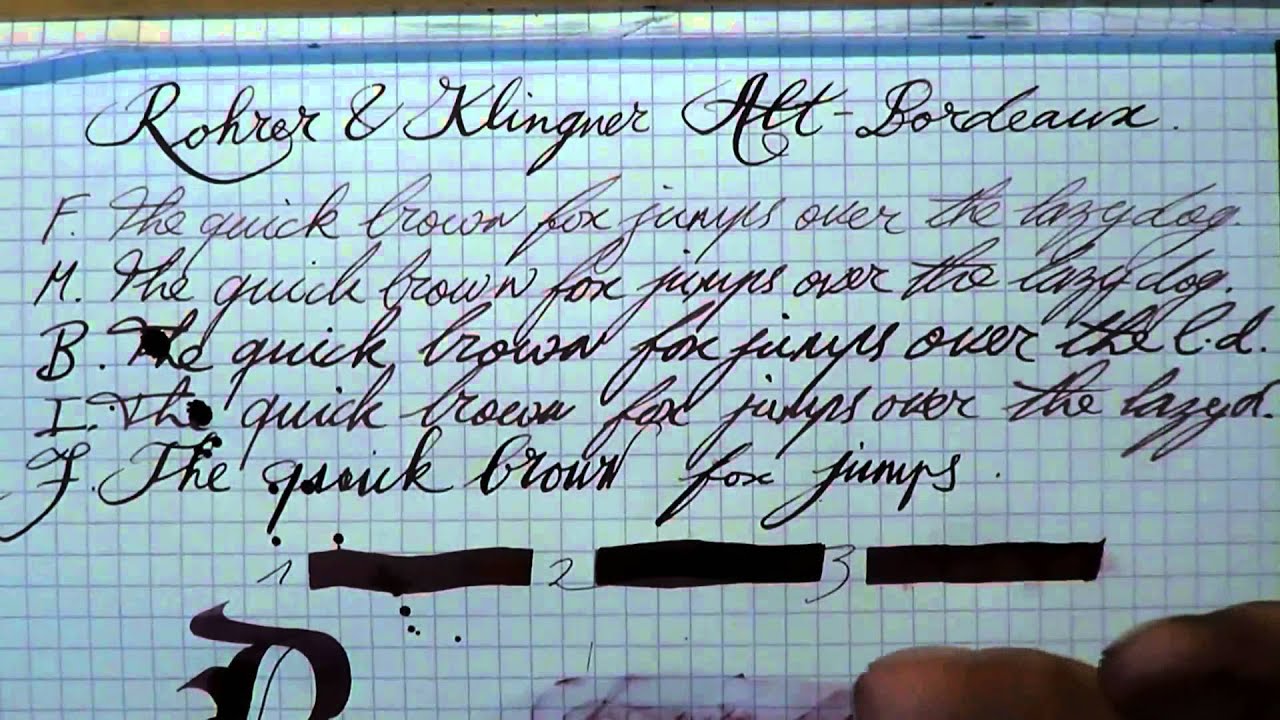 Rohrer & Klingner Alt-Bordeaux.
F. The quick brown fox jumps over the lazy dog.
M. The quick brown fox jumps over the lazy dog.
B. The quick brown fox jumps over the l.d.
I. The quick brown fox jumps over the lazy d.
F. The quick brown fox jumps.
1 2 3